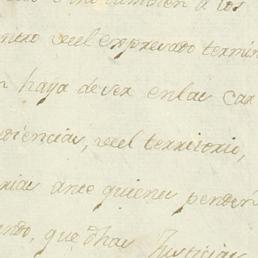 tambien a los
del expresado termin
haya de ver en las car
diencias, del territorio,
ante quienes penden
ando, que dhas Justicias